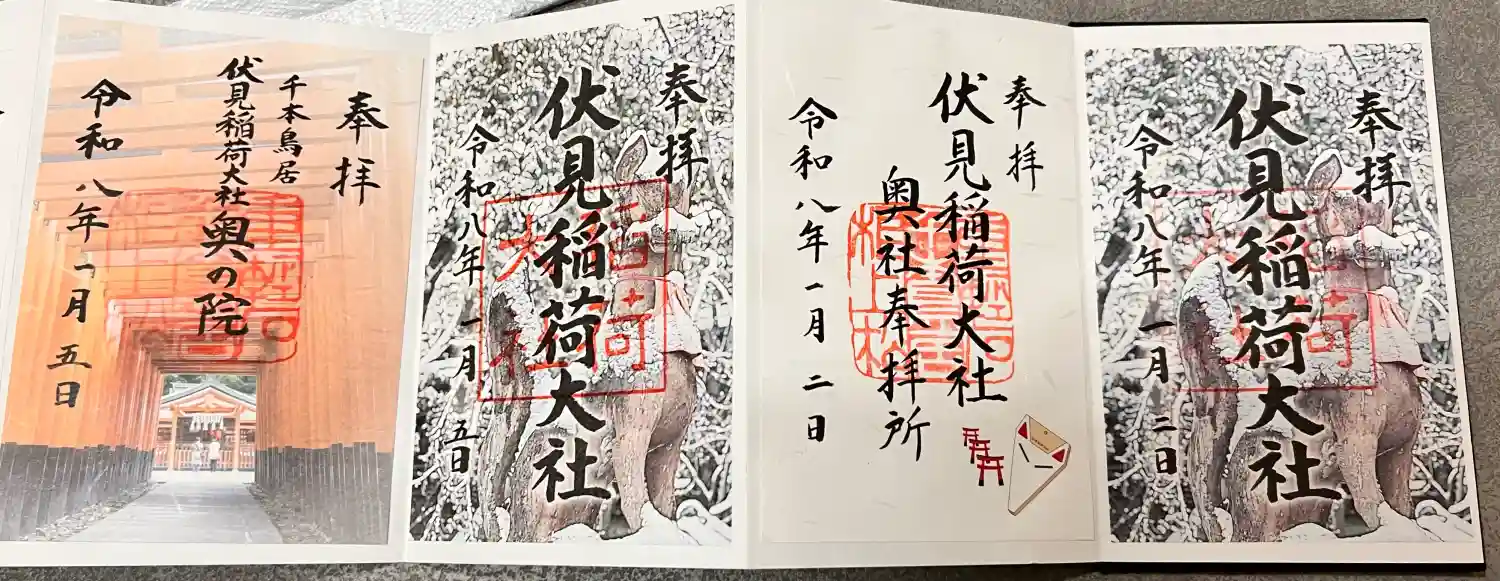 奉拝
伏見稲荷大社
令和八年一月二日
奉拝
伏見稲荷大社
奥社奉拝所
令和八年一月二日
奉拝
伏見稲荷大社
令和八年一月五日
奉拝
千本鳥居
伏見稲荷大社奥の院
令和八年一月五日